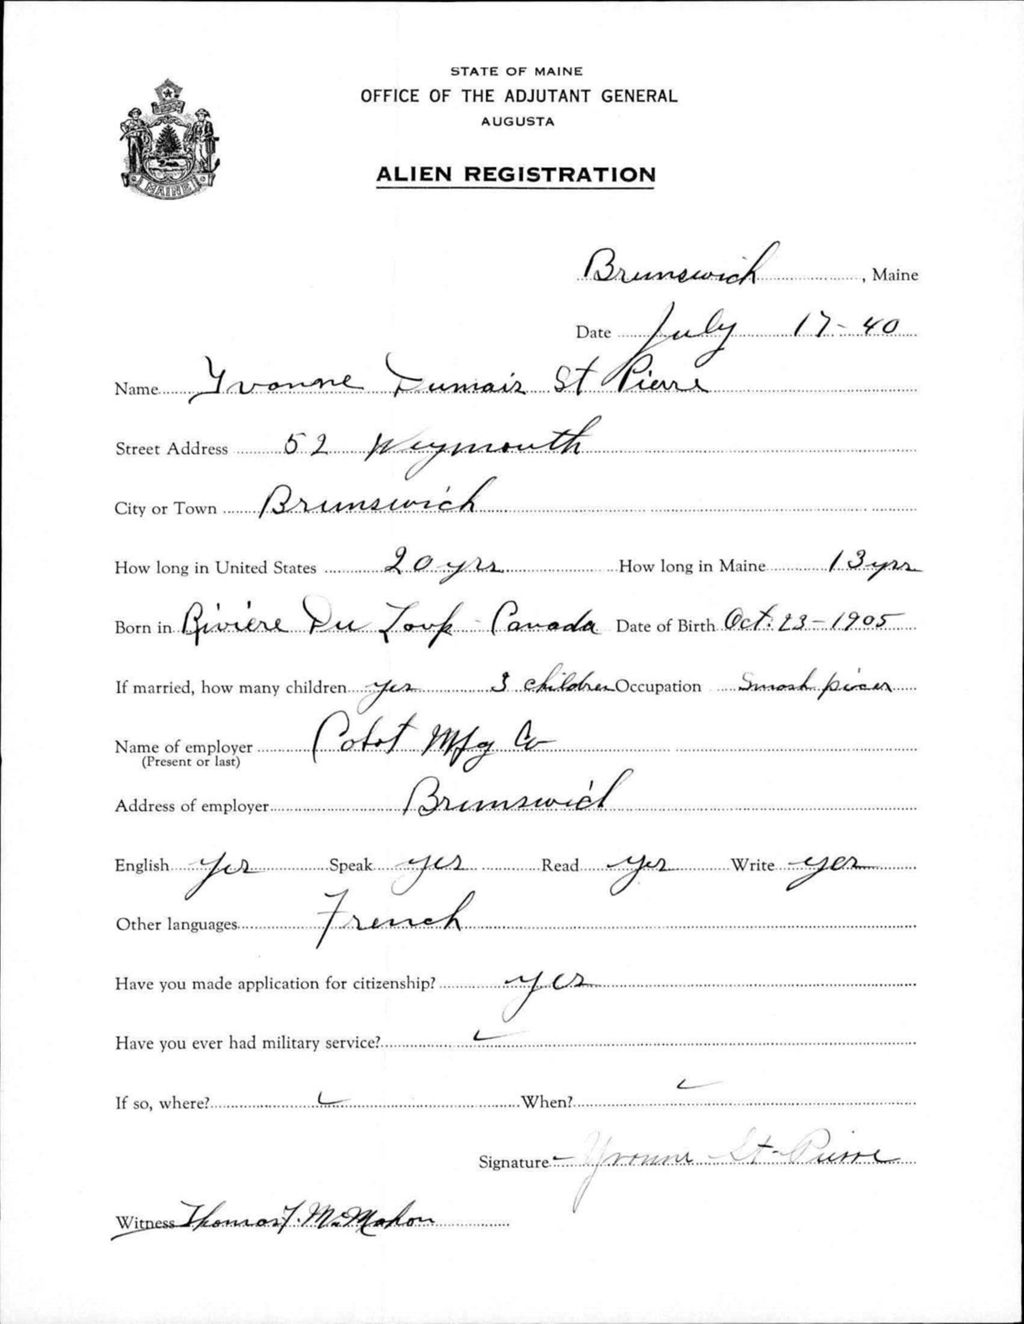 STATE OF MAINE
OFFICE OF THE ADJUTANT GENERAL
AUGUSTA
ALIEN REGISTRATION
MAINE
Brunswick, Maine
Date July 17-40
Name Yvonne Dumais St Pierre
Street Address 52 Weymouth
City or Town Brunswick
How long in United States 20 yrs How long in Maine 13 yrs
Born in Rivière Du Loup - Canada Date of Birth Oct. 23-1905
If married, how many children yes 3 children Occupation
Name of employer Cabot Mfg Co
(Present or last)
Address of employer Brunswick
English yes Speak yes Read yes Write yes
Other languages French
Have you made application for citizenship? yes
Have you ever had military service?
If so, where? When?
Signature Yvonne St-Pierre
Witness Thomas F. McMahon